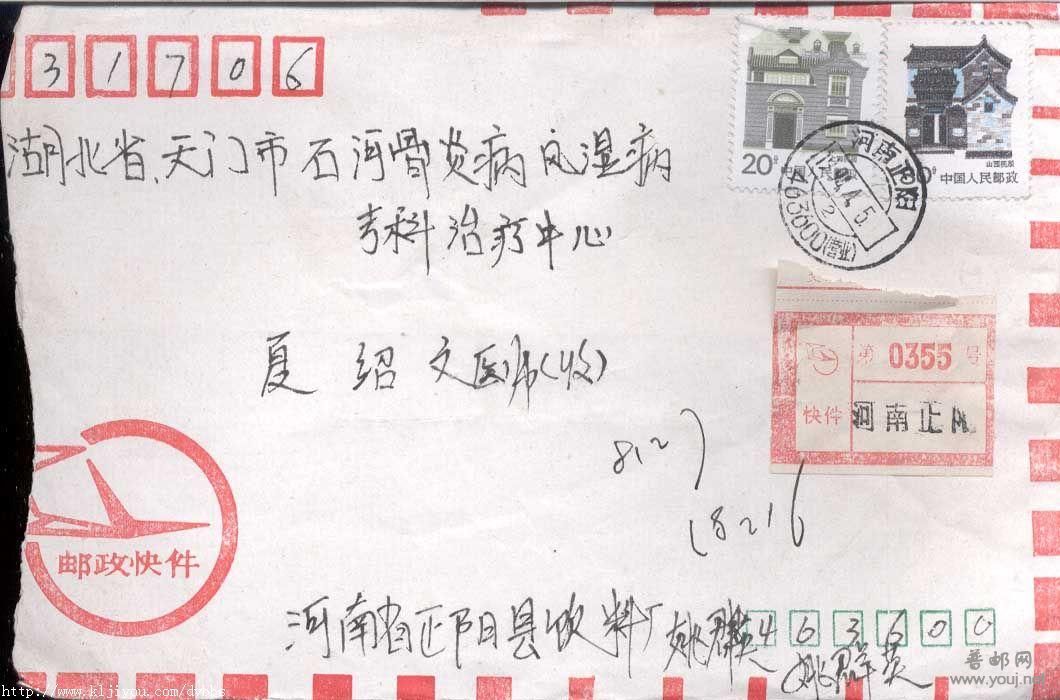 31706
20分 中国人民邮政
山西民居
80分 中国人民邮政
湖北省、天门市石河骨炎病风湿病
专科治疗中心
河南正阳
4.5
463600(营业)
夏绍文医师(收)
第 0355 号
快件 河南正阳
8127
18216
邮政快件
河南省正阳县饮料厂姚群英 463600
姚群英
普邮网
www.youj.net
http://www.kljiyou.com/dvbbs